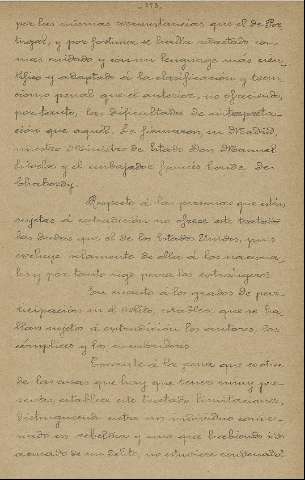 -393-
por las mismas circunstancias que el de Por-
tugal, y por fortuna se halla redactado con
mas cuidado y con un lenguaje más cien-
tífico y adaptado á la clasificacion y tecni-
cismo penal que el anterior, no ofreciendo,
por tanto, las dificultades de interpreta-
cion que aquel. Lo firmaron en Madrid,
nuestro Ministro de Estado Don Manuel
Silvela y el embajador francés Conde de
Chabordy.
Respecto á las personas que están
sujetas á extradicion no ofrece este tratado
las dudas que el de los Estados Unidos, pues
excluye solamente de ella á los naciona-
les y por tanto rige para los extrangeros.
En cuanto á los grados de par-
ticipacion en el delito, establece que se ha-
llan sujetos á extradicion los autores, los
cómplices y los encubridores.
Tocante á la pena que es otra
de las cosas que hay que tener muy pre-
sentes, establece este tratado limitaciones,
distinguiendo entre un individuo conde-
nado en rebeldia y uno que habiendo sido
acusado de un delito, no estuviere condenado